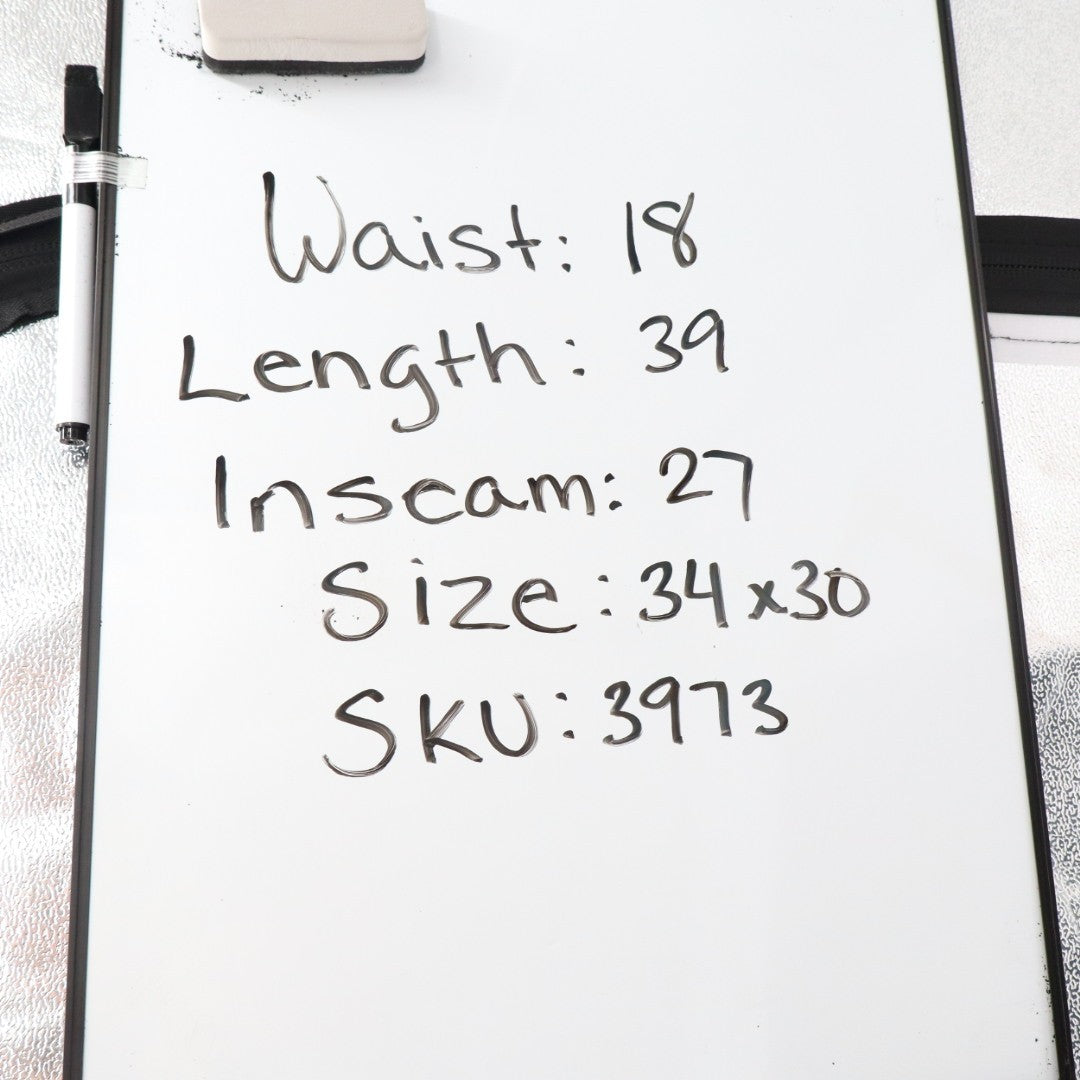 Waist: 18
Length: 39
Inseam: 27
Size: 34x30
SKU: 3973